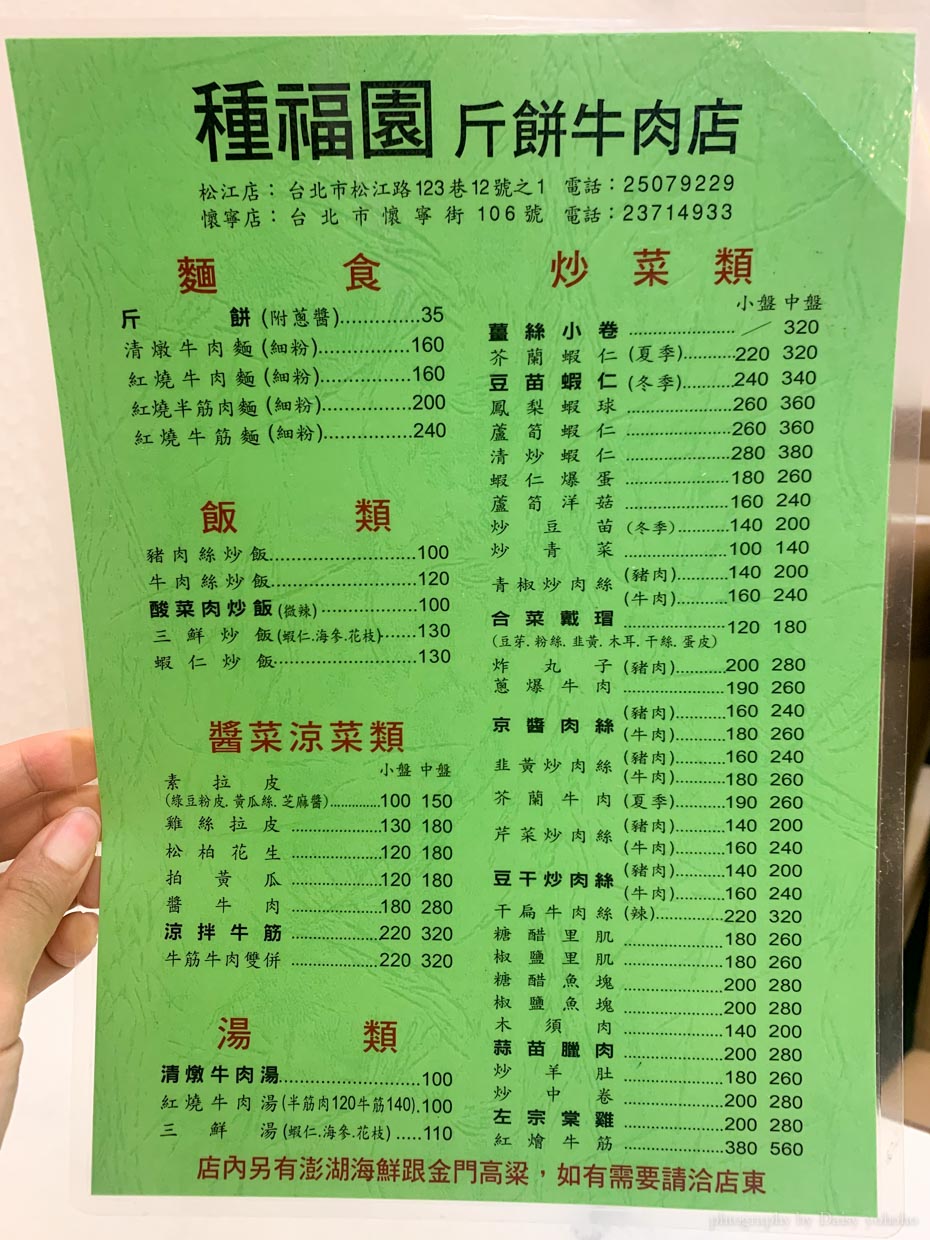 種福園 斤餅牛肉店
松江店：台北市松江路123巷12號之1 電話：25079229
懷寧店：台北市懷寧街106號 電話：23714933
麵食
斤餅(附蔥醬)..............35
清燉牛肉麵(細粉)................160
紅燒牛肉麵(細粉)................160
紅燒半筋肉麵(細粉)................200
紅燒牛筋麵(細粉)................240
飯類
豬肉絲炒飯..........................100
牛肉絲炒飯..........................120
酸菜肉炒飯(微辣)..................100
三鮮炒飯(蝦仁.海參.花枝).......130
蝦仁炒飯..........................130
醬菜涼菜類
小盤 中盤
素拉皮
(綠豆粉皮.黃瓜絲.芝麻醬)..............100 150
雞絲拉皮..................130 180
松柏花生..................120 180
拍黃瓜..................120 180
醬牛肉..................180 280
涼拌牛筋..................220 320
牛筋牛肉雙併..................220 320
湯類
清燉牛肉湯..........................100
紅燒牛肉湯(半筋肉120牛筋140).100
三鮮湯(蝦仁.海參.花枝).....110
炒菜類
小盤 中盤
薑絲小卷....................／ 320
芥蘭蝦仁(夏季)..........220 320
豆苗蝦仁(冬季)..........240 340
鳳梨蝦球....................260 360
蘆筍蝦仁....................260 360
清炒蝦仁....................280 380
蝦仁爆蛋....................180 260
蘆筍洋菇....................160 240
炒豆苗(冬季)..........140 200
炒青菜....................100 140
青椒炒肉絲(豬肉)..........140 200
(牛肉)..........160 240
合菜戴瑁....................120 180
(豆芽.粉絲.韭黃.木耳.干絲.蛋皮)
炸丸子(豬肉)..........200 280
蔥爆牛肉....................190 260
京醬肉絲(豬肉)..........160 240
(牛肉)..........180 260
韭黃炒肉絲(豬肉)..........160 240
(牛肉)..........180 260
芥蘭牛肉(夏季)..........190 260
芹菜炒肉絲(豬肉)..........140 200
(牛肉)..........160 240
豆干炒肉絲(豬肉)..........140 200
(牛肉)..........160 240
干扁牛肉絲(辣)..........220 320
糖醋里肌....................180 260
椒鹽里肌....................180 260
糖醋魚塊....................200 280
椒鹽魚塊....................200 280
木須肉....................140 200
蒜苗臘肉....................200 280
炒羊肚....................180 260
炒中卷....................200 280
左宗棠雞....................200 280
紅燴牛筋....................380 560
店內另有澎湖海鮮跟金門高粱，如有需要請洽店東
photography by Daisy yohoho